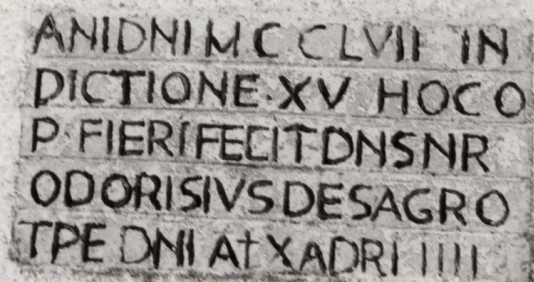 ANIDNI M C C LVII IN
DICTIONE·XV HOC O
P·FIERI FECIT·DNS NR
ODORISIVS DE SAGRO
TPE DNI A†XADRI IIII